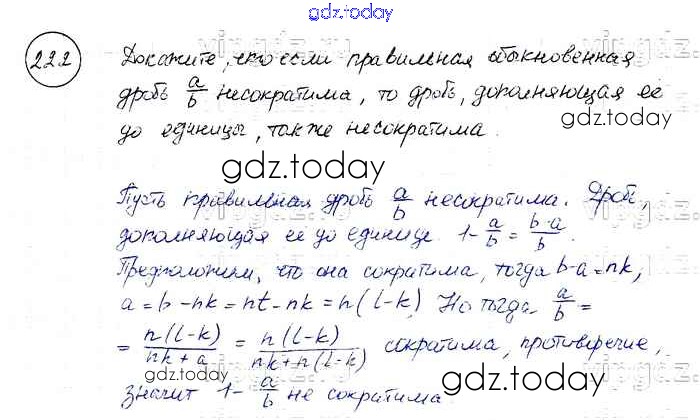 gdz.today
222 Докажите, что если правильная обыкновенная
дробь a/b несократима, то дробь, дополняющая её
до единицы, также несократима.
gdz.today
Пусть правильная дробь a/b несократима. Дробь,
дополняющая её до единице 1-a/b=b-a/b.
Предположим, что она сократима, тогда b-a=nk,
a=b-nk=nt-nk=n(l-k) Но тогда a/b=
=n(l-k)/nk+a=n(l-k)/nk+n(l-k) сократима, противоречие,
значит 1-a/b не сократима
gdz.today
gdz.today